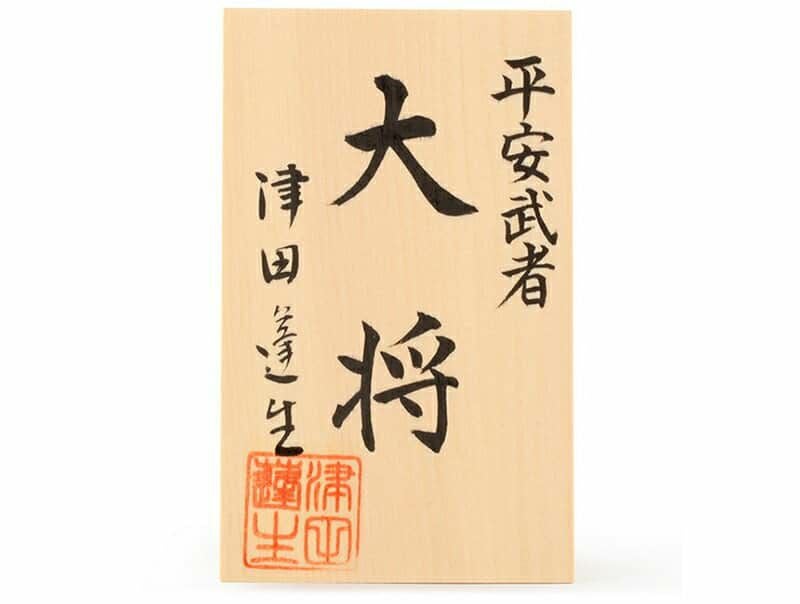 平安武者
大将
津田蓬生
津田蓬生